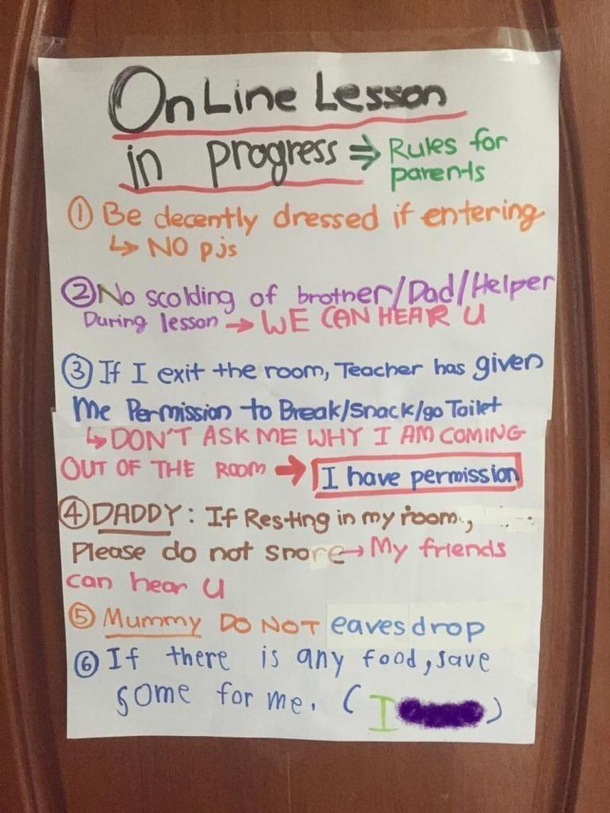 OnLine Lesson
in progress ⇒ Rules for
parents
① Be decently dressed if entering
↳ NO pjs
② No scolding of brother/Dad/Helper
During lesson → WE CAN HEAR U
③ If I exit the room, Teacher has given
me Permission to Break/snack/go Toilet
↳ DON'T ASK ME WHY I AM COMING
OUT OF THE ROOM → I have permission
④ DADDY: If Resting in my room,
Please do not snore → My friends
can hear U
⑤ Mummy DO NOT eavesdrop
⑥ If there is any food, save
some for me. (I )